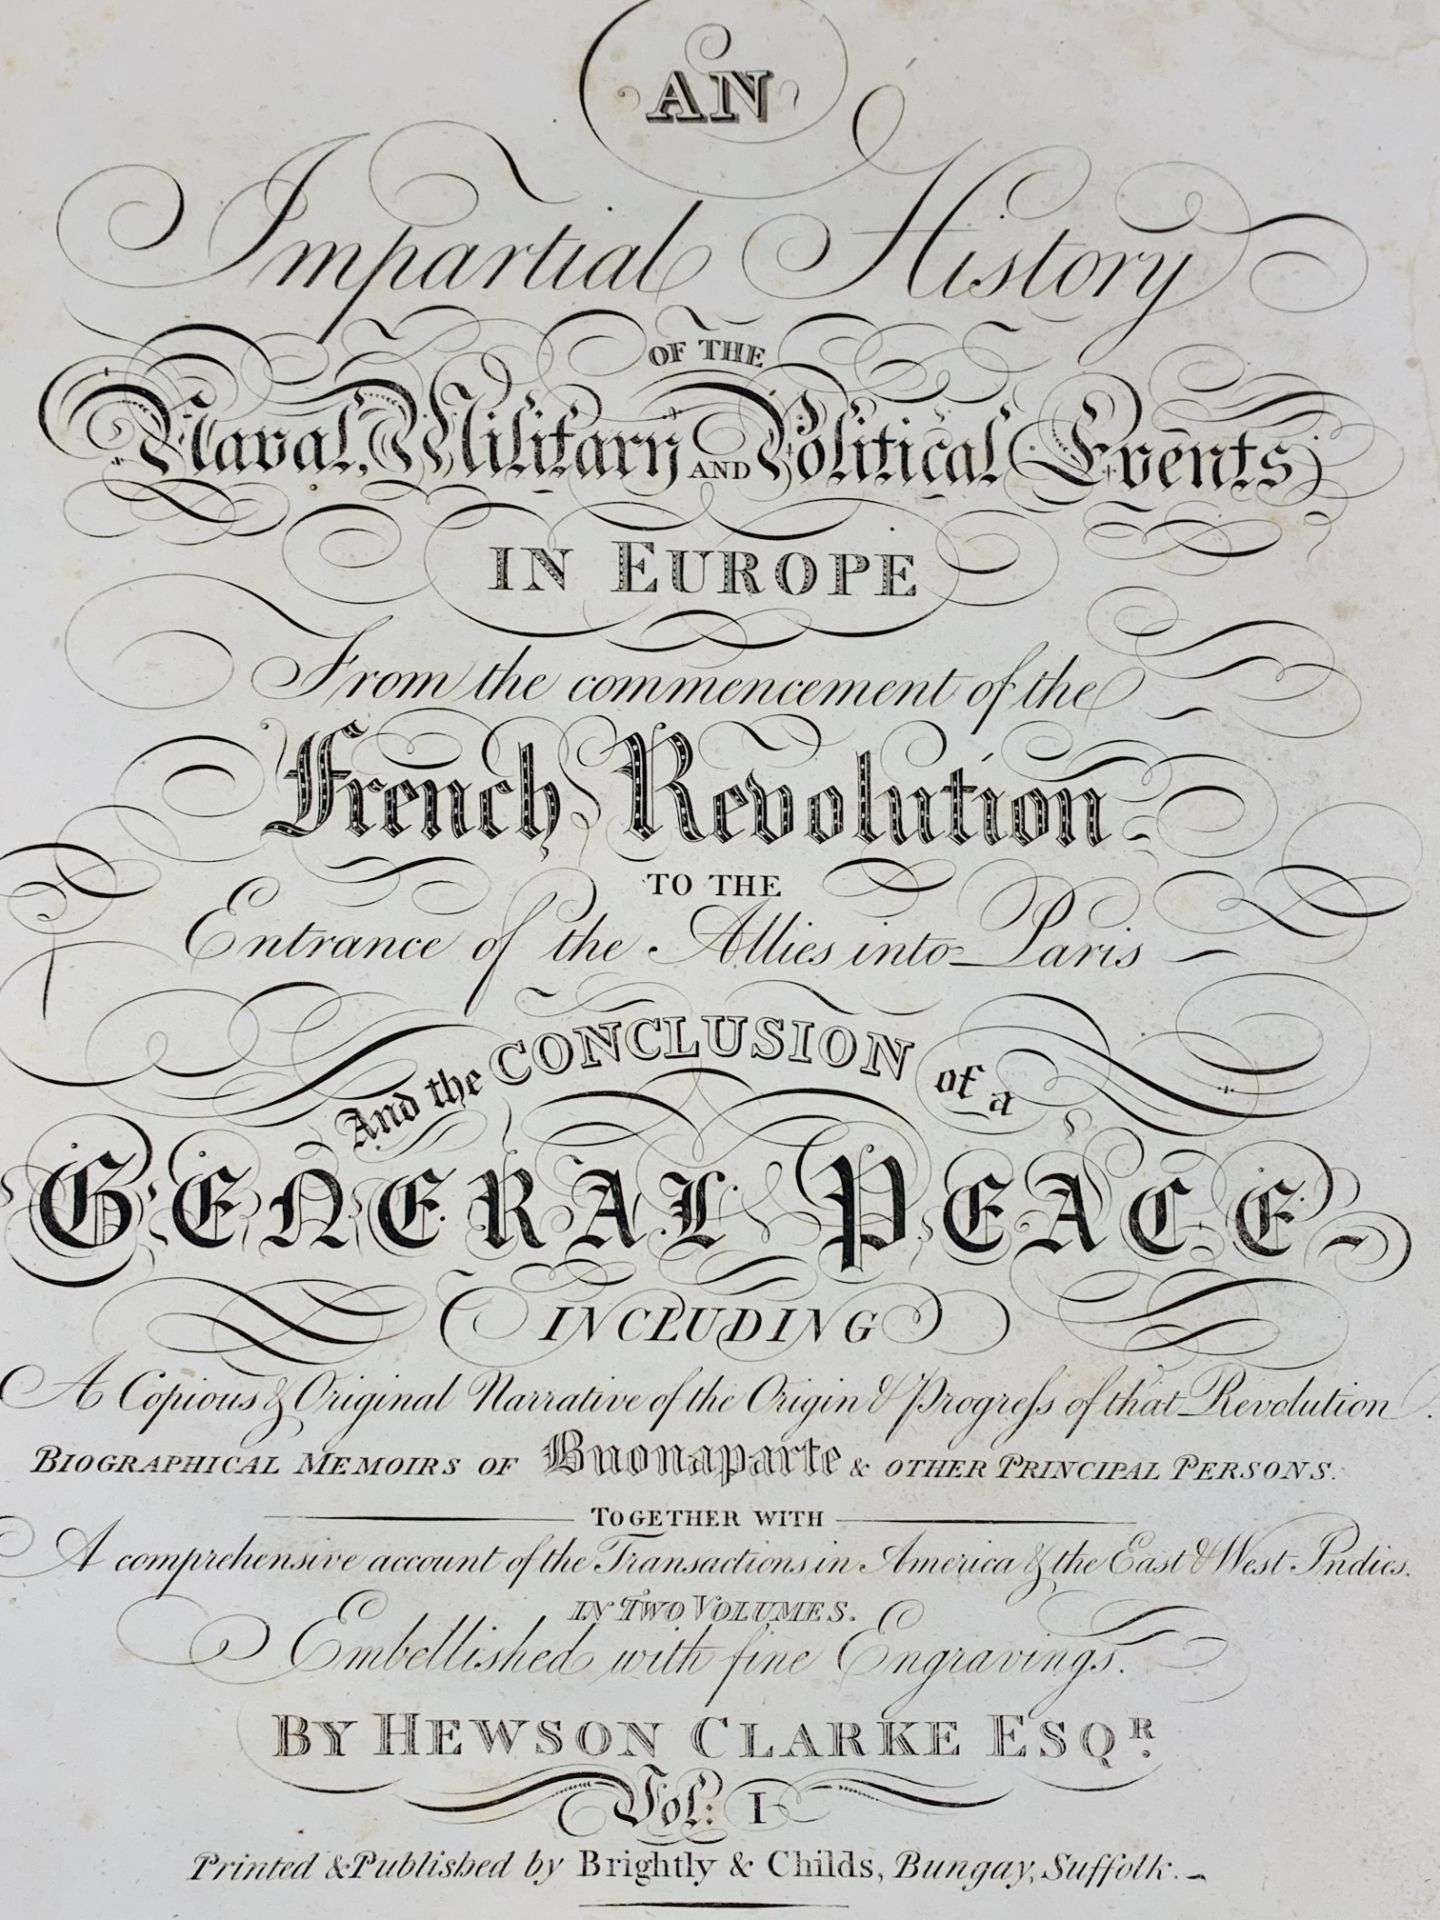 AN
Impartial History
OF THE
Naval, Military AND Political Events
IN EUROPE
From the commencement of the
French Revolution
TO THE
Entrance of the Allies into Paris
And the CONCLUSION of a
GENERAL PEACE
INCLUDING
A Copious & Original Narrative of the Origin & Progreſs of that Revolution.
BIOGRAPHICAL MEMOIRS OF Buonaparte & OTHER PRINCIPAL PERSONS.
TOGETHER WITH
A comprehensive account of the Transactions in America & the East & West Indies.
IN TWO VOLUMES.
Embellished with fine Engravings.
BY HEWSON CLARKE ESQR.
Vol: I
Printed & Published by Brightly & Childs, Bungay, Suffolk.